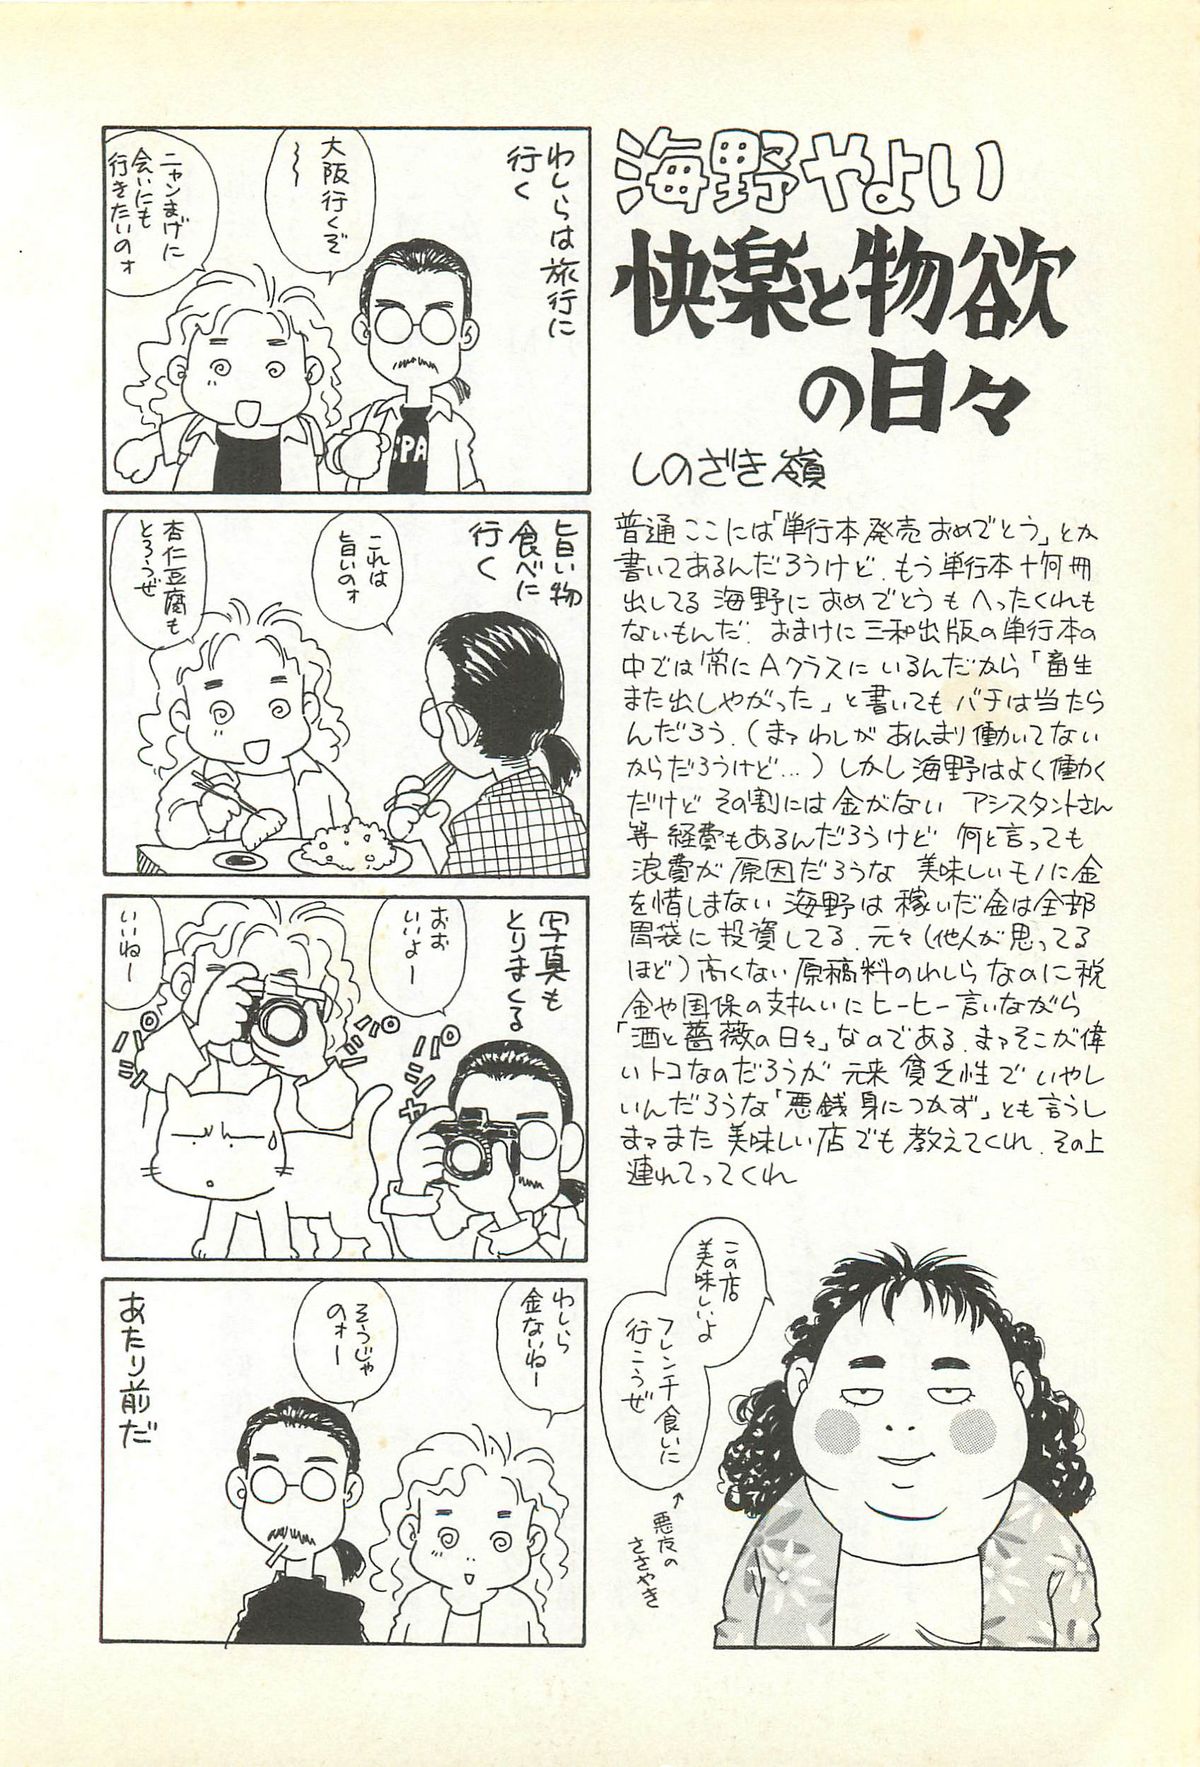 海野やよい
快楽と物欲
の日々
しのざき嶺
普通ここには「単行本発売おめでとう」とか
書いてあるんだろうけど、もう単行本十何冊
出してる海野におめでとうもへったくれも
ないもんだ。おまけに三和出版の単行本の
中では常にAクラスにいるんだから「畜生
また出しやがった」と書いてもバチは当たら
んだろう。(まァわしがあんまり働いてない
からだろうけど…)しかし海野はよく働く
だけどその割には金がない アシスタントさん
等経費もあるんだろうけど 何と言っても
浪費が原因だろうな 美味しいモノに金
を惜しまない海野は稼いだ金は全部
胃袋に投資してる。元々(他人が思ってる
ほど)高くない原稿料のわしらなのに税
金や国保の支払いにヒーヒー言いながら
「酒と薔薇の日々」なのである。まァそこが偉
いトコなのだろうが 元来貧乏性でいやし
いんだろうな「悪銭身につかず」とも言うし
まァまた美味しい店でも教えてくれ。その上
連れてってくれ
この店
美味しいよ
フレンチ食いに
行こうぜ
↑
悪友の
ささやき
わしらは旅行に
行く
大阪行くぞ
〜
ニャンまげに
会いにも
行きたいのォ
SPA
旨い物
食べに
行く
これは
旨いのォ
杏仁豆腐も
とろうぜ
写真も
とりまくる
おお
いいよー
いいねー
パシャ
パシ
パシ
わしら
金ないねー
そうじゃ
のォー
あたり前だ